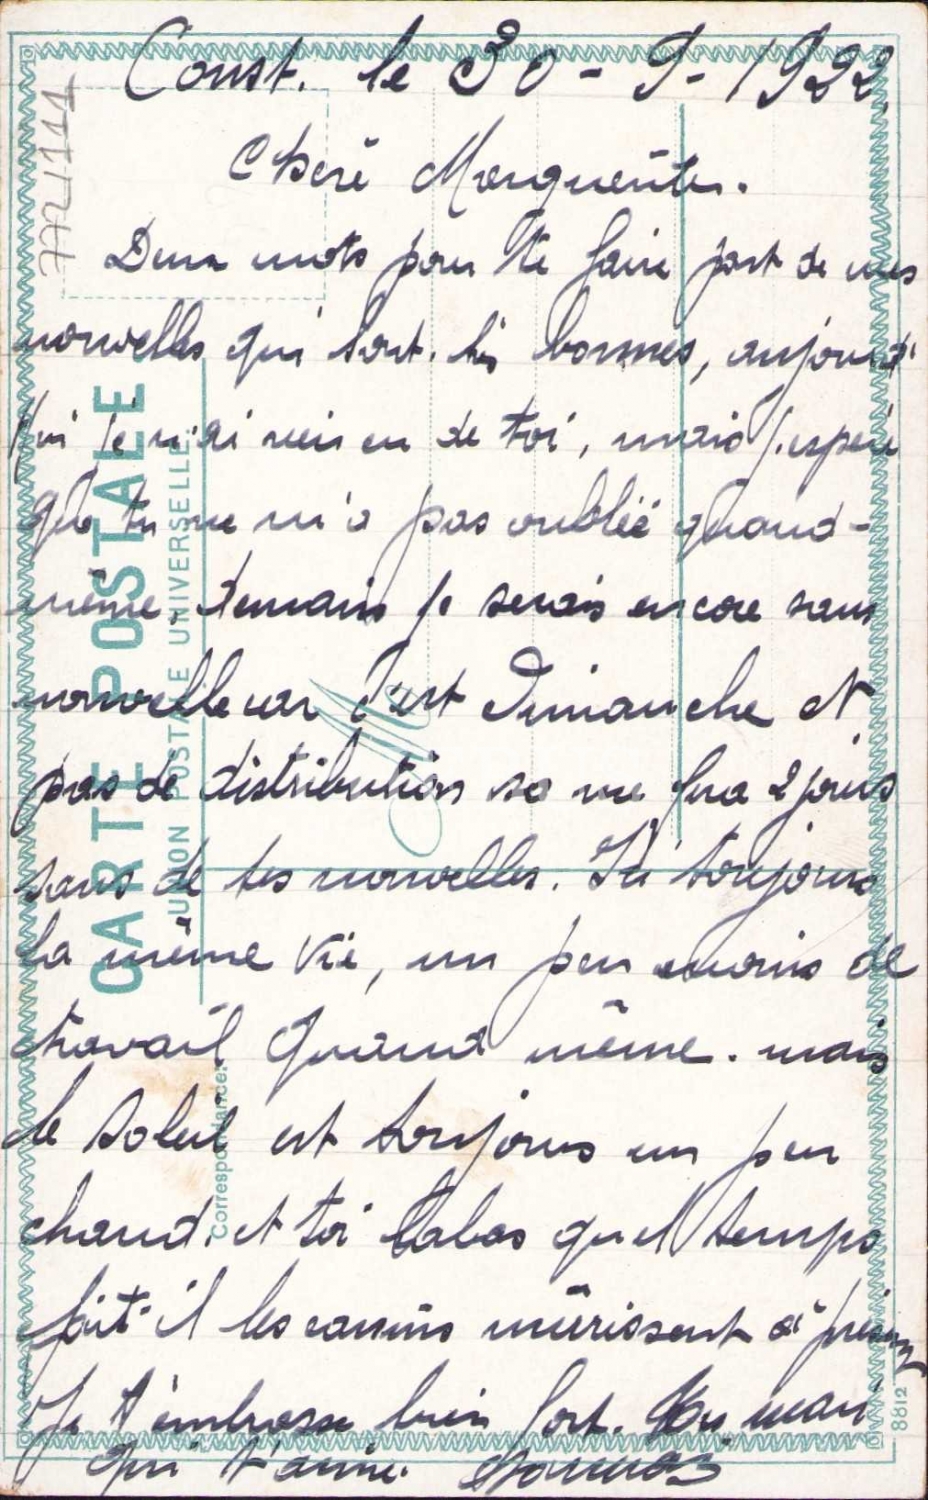 Const. le 30-9-1922
Cherè Marguerite.
Deux mots pour te faire part de mes
nouvelles qui sont. très bonnes, aujourd'
hui je n'ai rien eu de toi, mais j'espère
que tu ne m'a pas oublié quand-
même. demain je serais encore sans
nouvelle car c'est Dimanche et
pas de distribution sa me fera 2 jours
sans de tes nouvelles. Ici toujours
la même vie, un peu moins de
travail quand même. mais
le soleil est toujours un peu
chaud. et toi labas quel temps
fait-il les raisins mûrissent à présent
Je t'embrasse bien fort. Ton mari
qui t'aime.
CARTE POSTALE
UNION POSTALE UNIVERSELLE
Correspondance.
772/111
8812